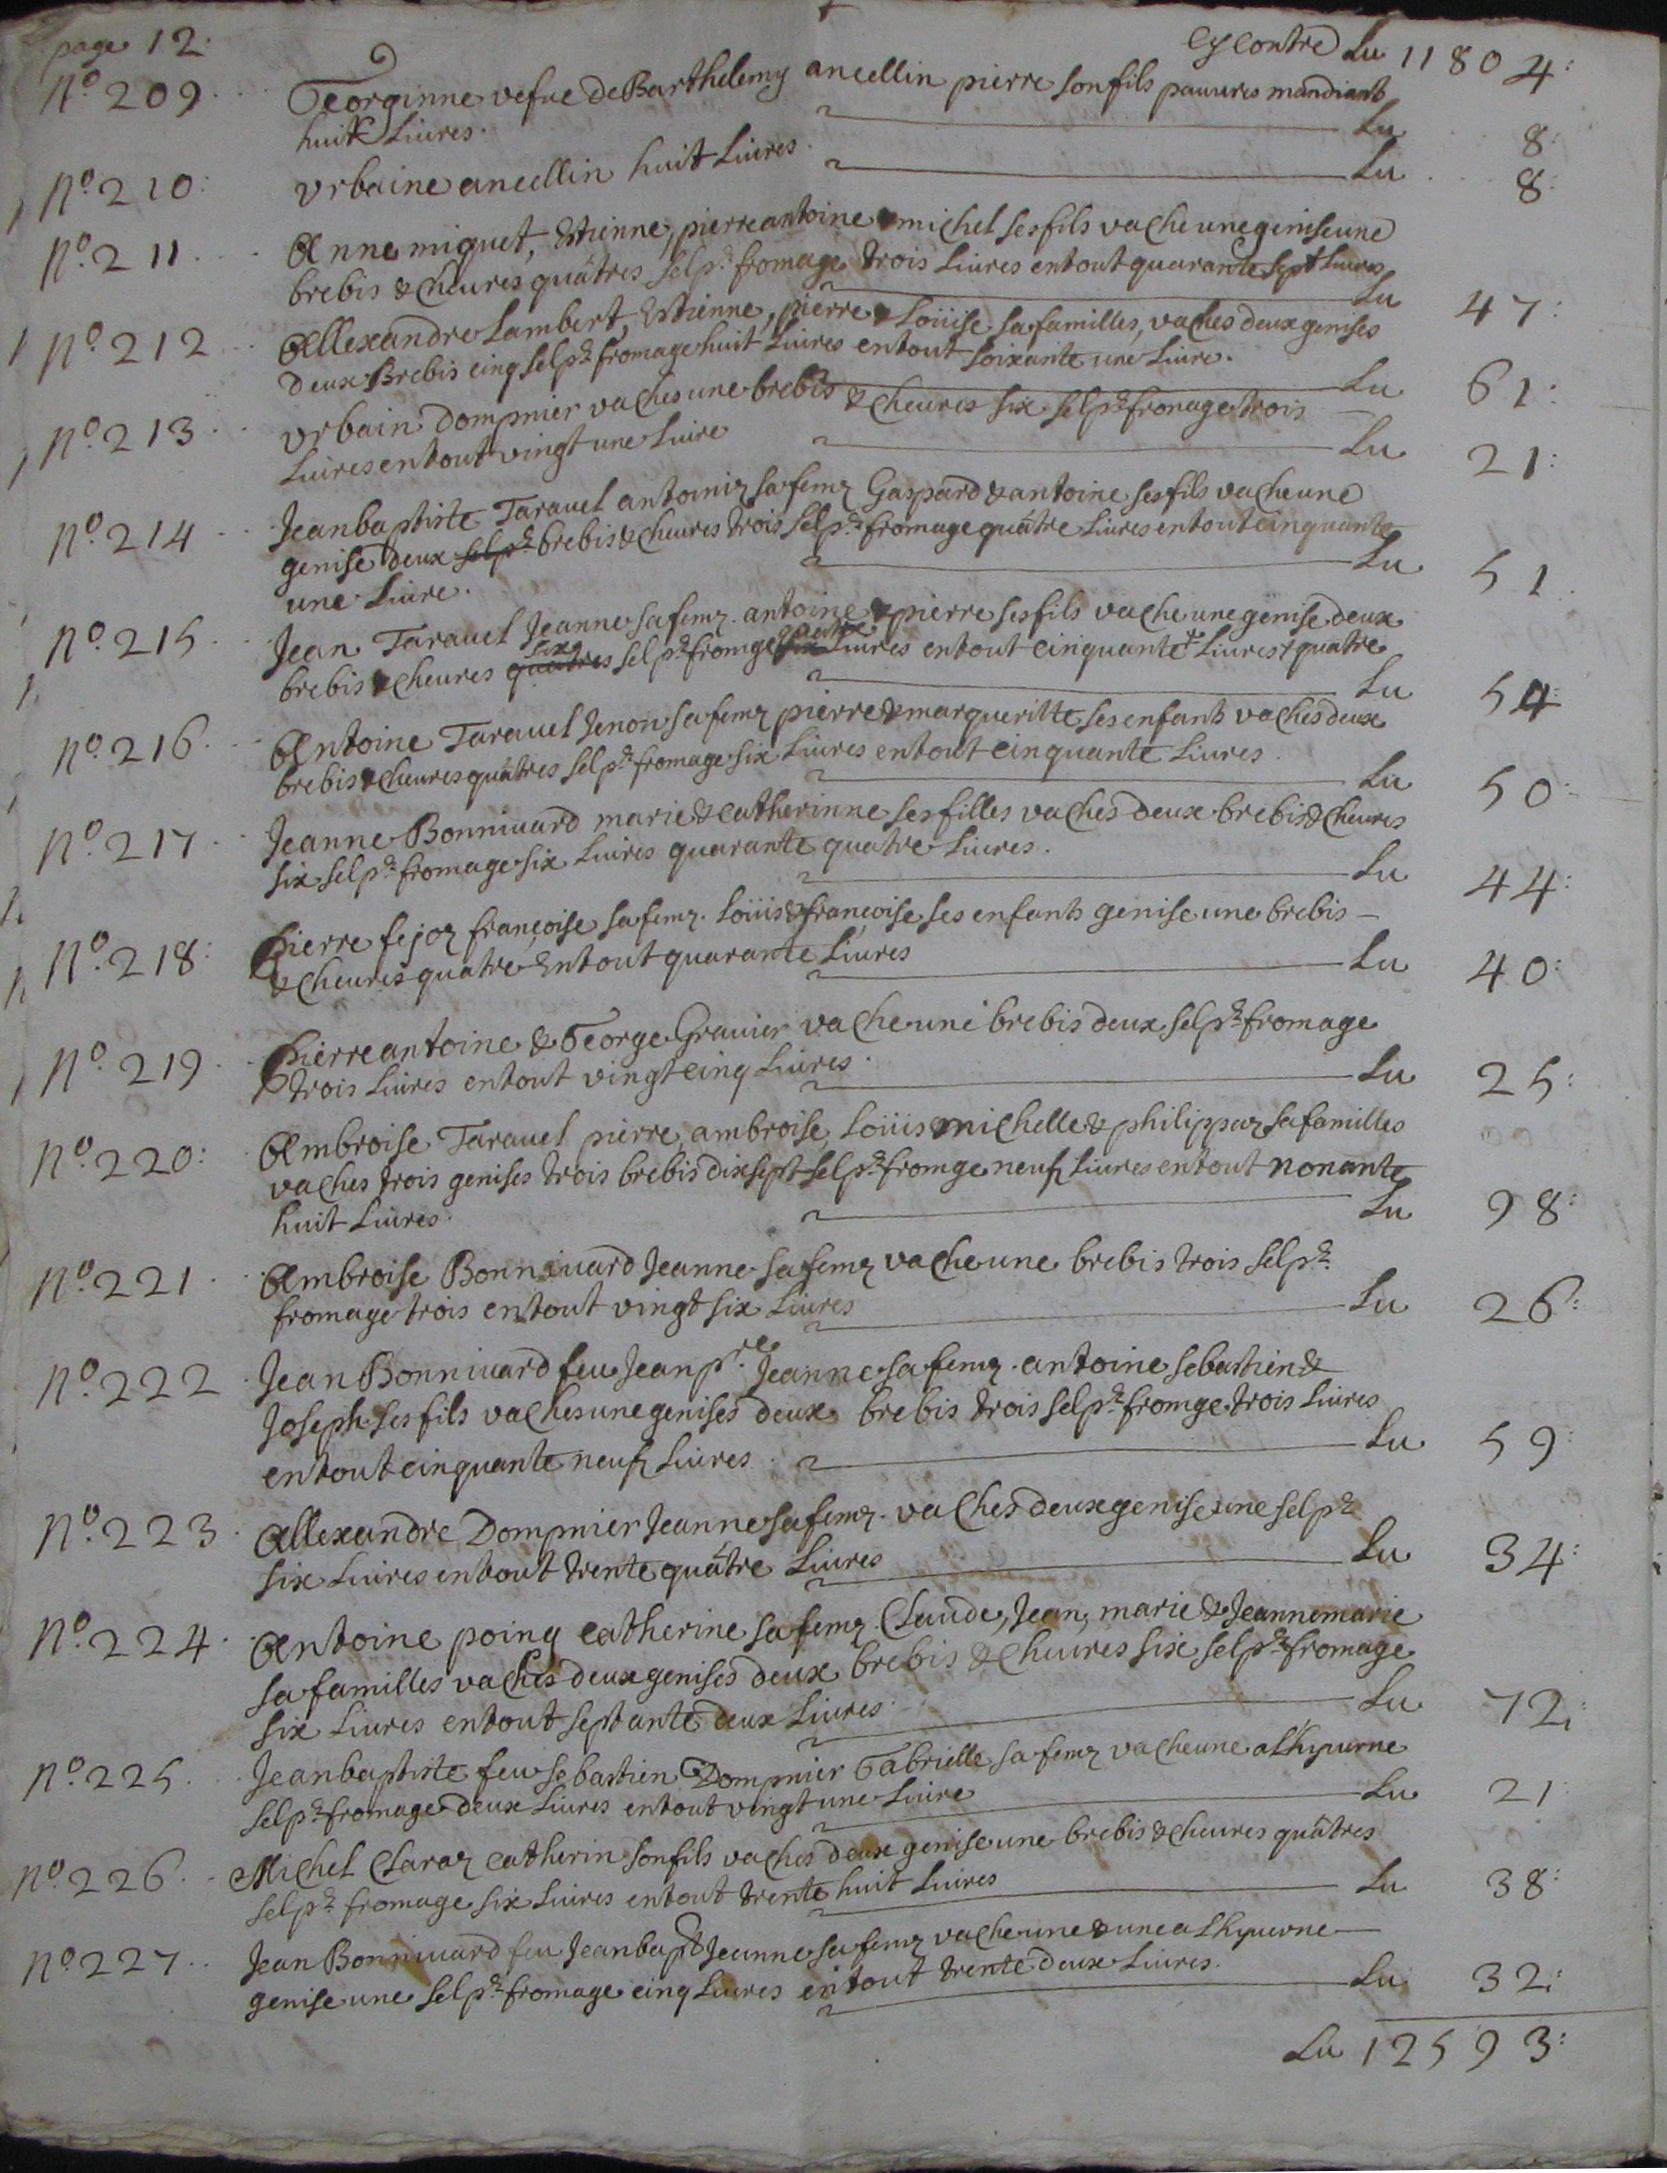 page 12.
cy contre Lu 11804:
No. 209. Georginne vefue de Barthelemy ancellin pierre son fils pauures mandiants
huit Liures. Lu 8:
No. 210: Vrbaine ancellin huit Liures. Lu 8:
No. 211. Anne miquet, Estienne, pierre antoine & michel ses fils vache une genise une
brebis & cheures quattres sel pr. fromage trois Liures en tout quarante sept Liures
Lu 47:
No. 212 Allexandre Lambert, Estienne, pierre & Loüise sa familles, vaches deux genises
deux Brebis cinq sel pr. fromage huit Liures en tout soixante une Liure.
Lu 61:
No. 213. Vrbain Dompnier vaches une brebis & cheures six sel pr. fromage trois
Liures en tout vingt une Liure Lu 21:
No. 214 Jean baptiste Tarauel antoiniz sa femz Gaspard & antoine ses fils vache une
genise deux sel pr. brebis & cheures trois sel pr. fromage quattre Liures en tout cinquante
une Liure. Lu 51
No. 215. Jean Tarauel Jeanne sa femz. antoine & pierre ses fils vache une genise deux
brebis & cheures quattres six sel pr. fromge six quattre Liures en tout cinquante + Liures + quatre
Lu 54:
No. 216. Antoine Tarauel Jenon sa femz pierre & margueritte ses enfants vaches deux
brebis & cheures quattres sel pr. fromage six Liures en tout cinquante Liures.
Lu 50:
No. 217. Jeanne Bonniuard marie & catherinne ses filles vaches deux brebis & cheures
six sel pr. fromage six Liures quarante quatre Liures.
Lu 44:
No. 218: Pierre fejoz françoise sa femz. Loüis & françoise ses enfants genise une brebis
& cheures quatre En tout quarante Liures Lu 40:
No. 219. Pierre antoine & George Grauier vache une brebis deux sel pr. fromage
trois Liures en tout vingt cinq Liures. Lu 25:
No. 220: Ambroise Tarauel pierre, ambroise, Loüis michelle & philippaz sa familles
vaches trois genises trois brebis dix sept sel pr. fromge neuf Liures en tout nonante
huit Liures. Lu 98:
No. 221. Ambroise Bonniuard Jeanne sa femz vache une brebis trois sel pr.
fromage trois en tout vingt six Liures Lu 26:
No. 222 Jean Bonniuard feu Jean pre. Jeanne sa femz. antoine sebastien &
Joseph ses fils vaches une genises deux brebis trois sel pr. fromge trois Liures
en tout cinquante neuf Liures. Lu 59:
No. 223. Allexandre Dompnier Jeanne sa femz. vaches deux genise une sel pr.
six Liures en tout trente quattre Liures Lu 34:
No. 224. Antoine poing catherine sa femz. Claude, Jean, marie & Jeanne marie
sa familles vaches deux genises deux brebis & cheures six sel pr. fromage
six Liures en tout septante deux Liures. Lu 72:
No. 225. Jean baptiste feu sebastien Dompnier Gabrielle sa femz vache une a Lhyuerne
sel pr. fromage deux Liures en tout vingt une Liure Lu 21:
No. 226. Michel Claraz catherin son fils vaches deux genise une brebis & cheures quattres
sel pr. fromage six Liures en tout trente huit Liures Lu 38:
No. 227. Jean Bonniuard feu Jean bapt Jeanne sa femz vache une & une a Lhyuerne
genise une sel pr. fromage cinq Liures en tout trente deux Liures. Lu 32:
Lu 12593: